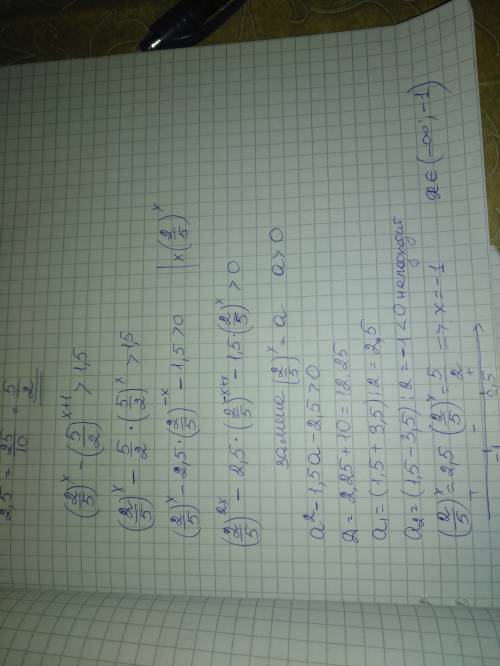 2,5 = 25/10 = 5/2
(2/5)^x − (5/2)^{x+1} > 1,5
(2/5)^x − 5/2 · (5/2)^x > 1,5
(2/5)^x − 2,5 · (2/5)^{−x} − 1,5 > 0 | × (2/5)^x
(2/5)^{2x} − 2,5 · (2/5)^{−x+x} − 1,5 · (2/5)^x > 0
замена (2/5)^x = a a > 0
a² − 1,5a − 2,5 > 0
D = 2,25 + 10 = 12,25
a₁ = (1,5 + 3,5) : 2 = 2,5
a₂ = (1,5 − 3,5) : 2 = −1 < 0 не подходит
(2/5)^x = 2,5 (2/5)^x = 5/2 => x = −1
x ∈ (−∞; −1)
+ − +
−1 2,5